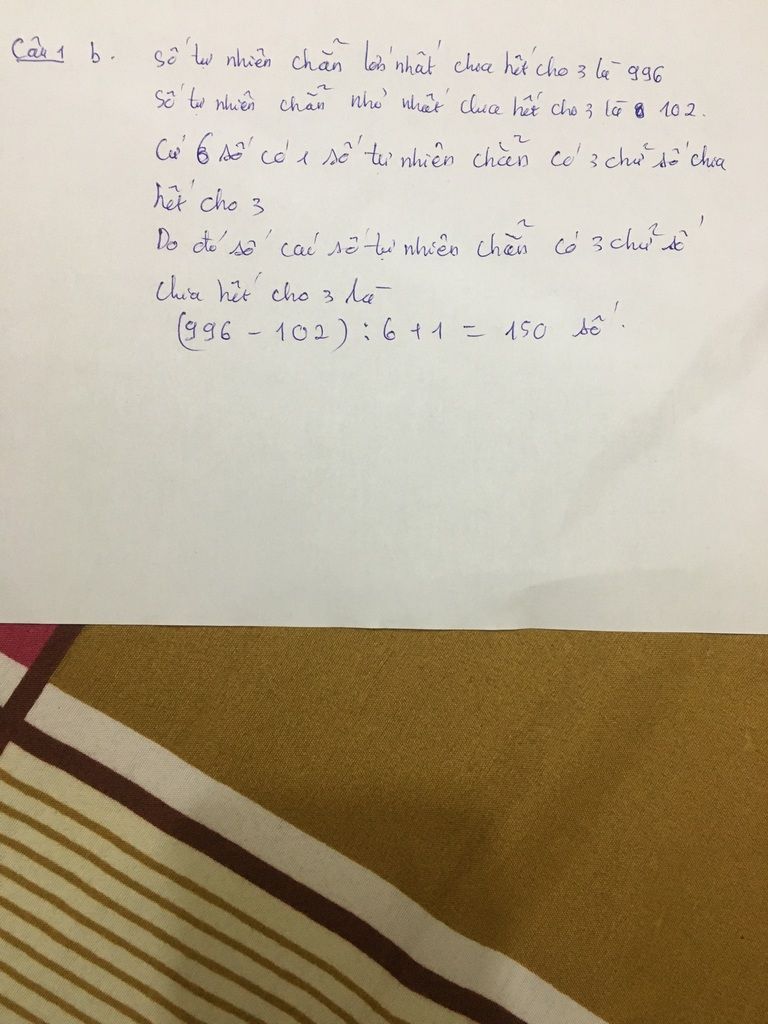 Câu 1 b. Số tự nhiên chẵn lớn nhất chia hết cho 3 là 996
Số tự nhiên chẵn nhỏ nhất chia hết cho 3 là 102.
Cứ 6 số có 1 số tự nhiên chẵn có 3 chữ số chia
hết cho 3
Do đó số các số tự nhiên chẵn có 3 chữ số
chia hết cho 3 là
(996 - 102) : 6 + 1 = 150 số.